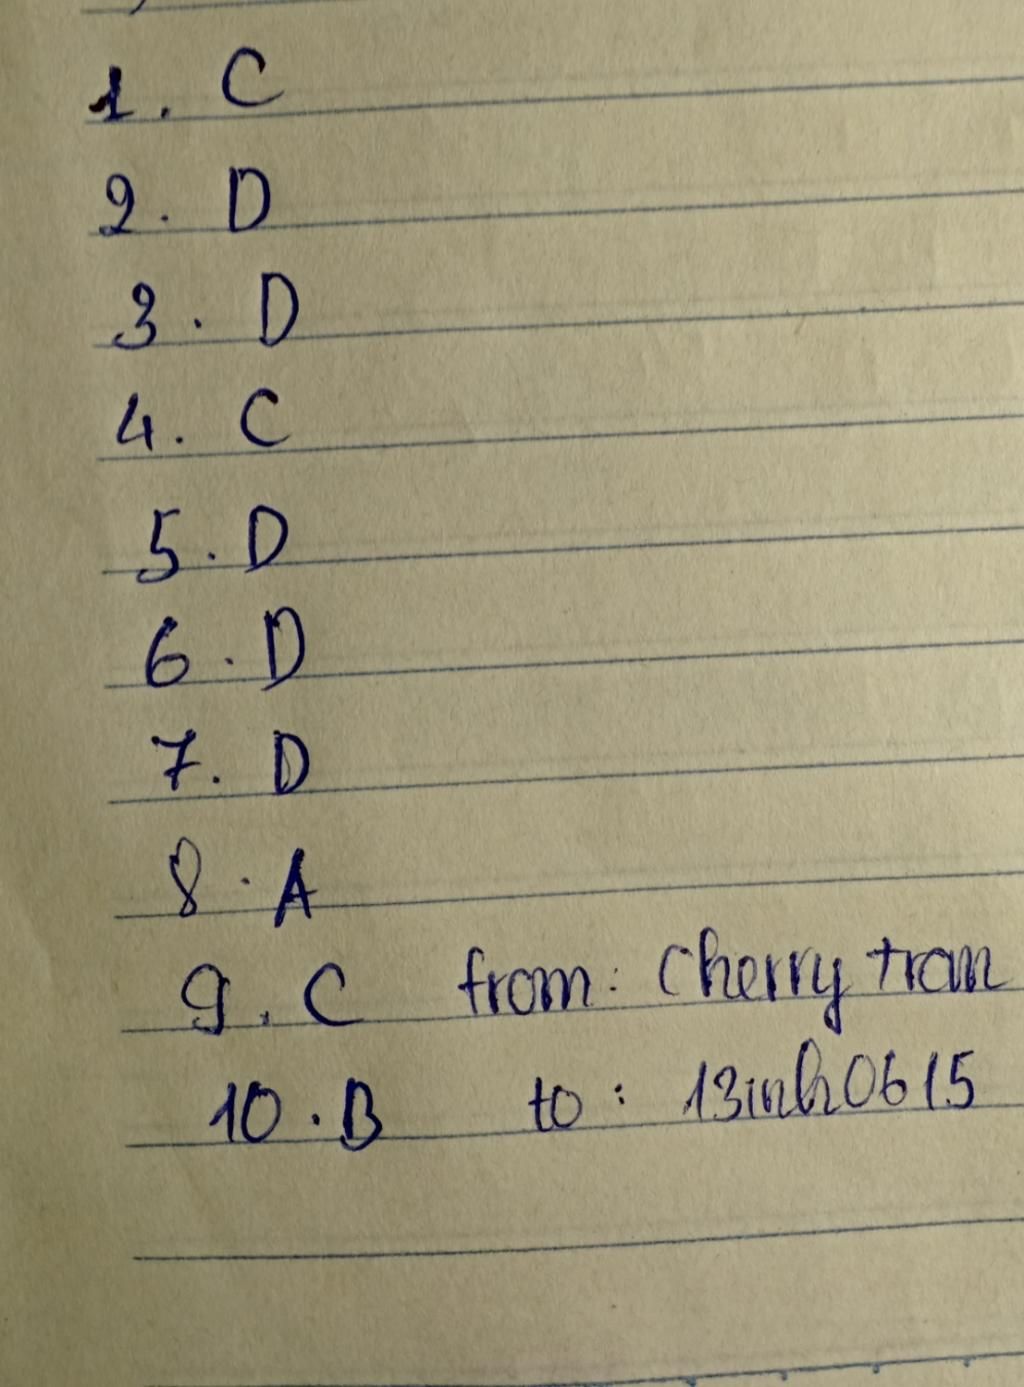 1. C
2. D
3. D
4. C
5. D
6. D
7. D
8. A
9. C from: Cherry tran
10. B to: 13inh0615